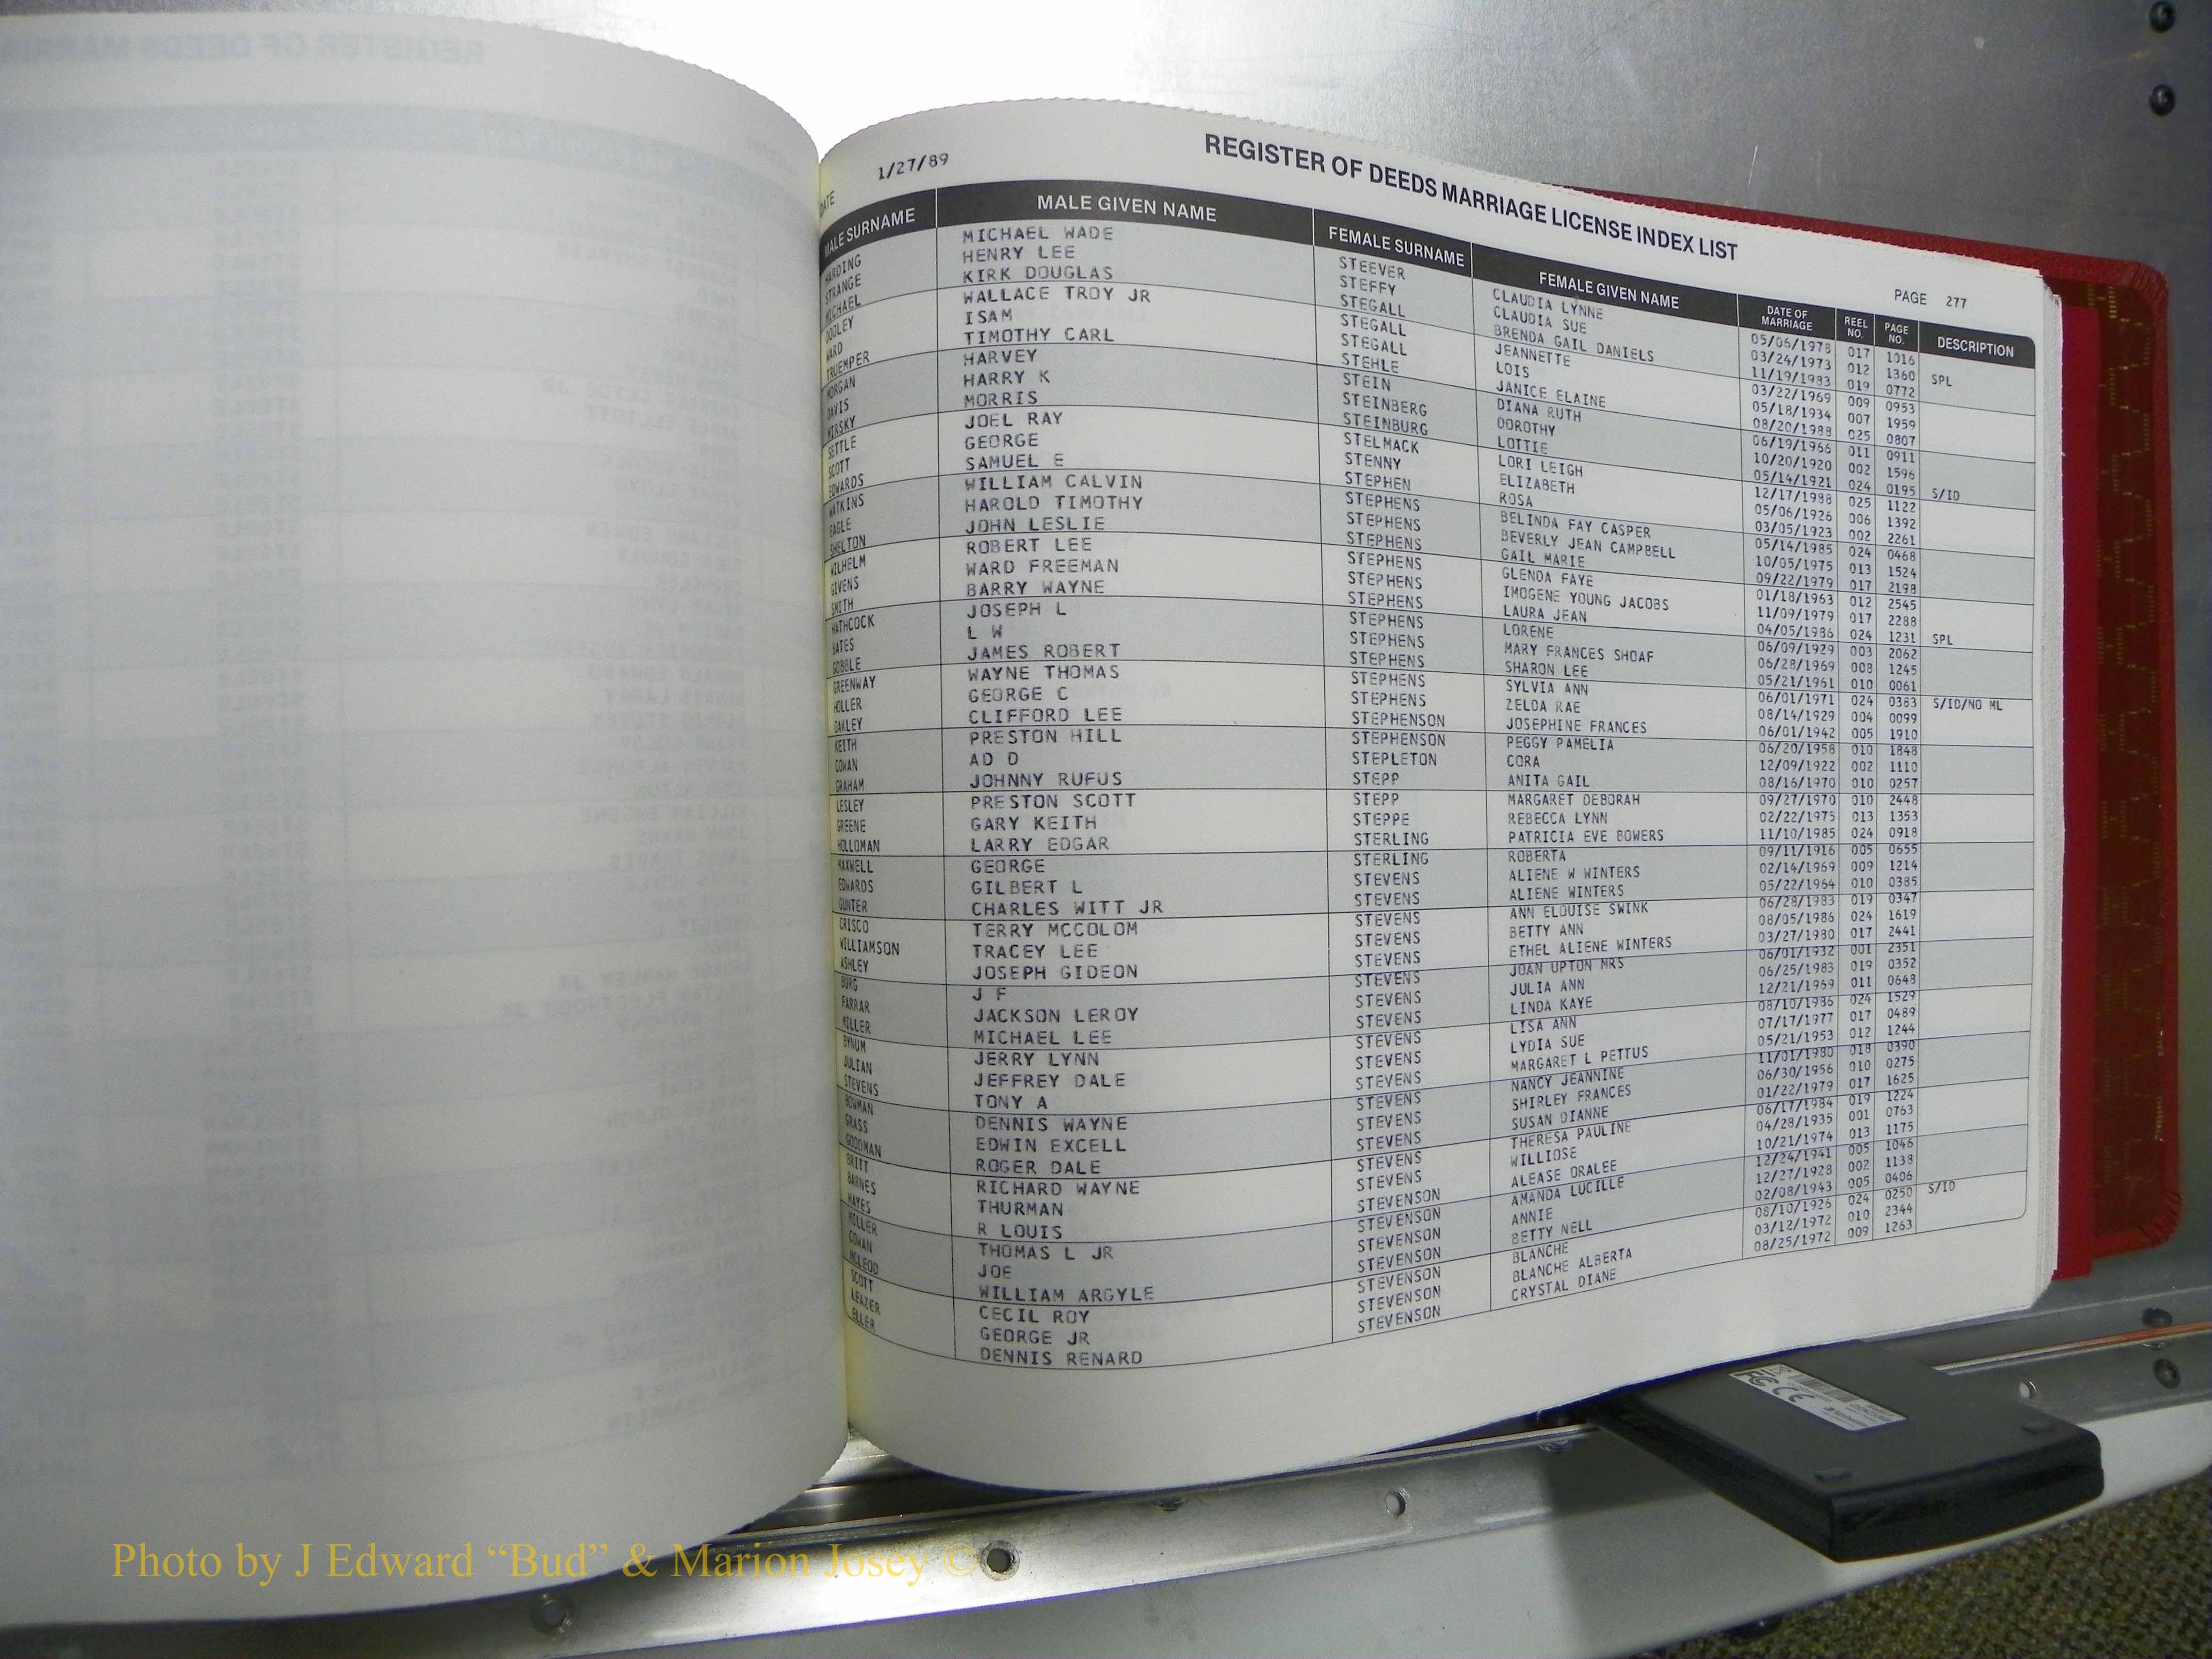 DATE 1/27/89
REGISTER OF DEEDS MARRIAGE LICENSE INDEX LIST
PAGE 277
MALE SURNAME MALE GIVEN NAME FEMALE SURNAME FEMALE GIVEN NAME DATE OF MARRIAGE REEL NO. PAGE NO. DESCRIPTION
HARDING MICHAEL WADE STEEVER CLAUDIA LYNNE 05/06/1978 017 1016
STRANGE HENRY LEE STEFFY CLAUDIA SUE 03/24/1973 012 1360 SPL
MICHAEL KIRK DOUGLAS STEGALL BRENDA GAIL DANIELS 11/19/1983 019 0772
DOOLEY WALLACE TROY JR STEGALL JEANNETTE 03/22/1969 009 0953
WARD ISAM STEGALL LOIS 05/18/1934 007 1959
TRUEMPER TIMOTHY CARL STEHLE JANICE ELAINE 08/20/1988 025 0807
MORGAN HARVEY STEIN DIANA RUTH 06/19/1966 011 0911
DAVIS HARRY K STEINBERG DOROTHY 10/20/1920 002 1596
MIRSKY MORRIS STEINBURG LOTTIE 05/14/1921 024 0195 S/ID
SETTLE JOEL RAY STELMACK LORI LEIGH 12/17/1988 025 1122
SCOTT GEORGE STENNY ELIZABETH 05/06/1926 006 1392
EDWARDS SAMUEL E STEPHEN ROSA 03/05/1923 002 2261
WATKINS WILLIAM CALVIN STEPHENS BELINDA FAY CASPER 05/14/1985 024 0468
EAGLE HAROLD TIMOTHY STEPHENS BEVERLY JEAN CAMPBELL 10/05/1975 013 1524
SHELTON JOHN LESLIE STEPHENS GAIL MARIE 09/22/1979 017 2198
WILHELM ROBERT LEE STEPHENS GLENDA FAYE 01/18/1963 012 2545
GIVENS WARD FREEMAN STEPHENS IMOGENE YOUNG JACOBS 11/09/1979 017 2288
SMITH BARRY WAYNE STEPHENS LAURA JEAN 04/05/1986 024 1231 SPL
HATHCOCK JOSEPH L STEPHENS LORENE 06/09/1929 003 2062
BATES L W STEPHENS MARY FRANCES SHOAF 06/28/1969 008 1245
GOBBLE JAMES ROBERT STEPHENS SHARON LEE 05/21/1961 010 0061
GREENWAY WAYNE THOMAS STEPHENS SYLVIA ANN 06/01/1971 024 0383 S/ID/NO ML
HOLLER GEORGE C STEPHENS ZELDA RAE 08/14/1929 004 0099
OAKLEY CLIFFORD LEE STEPHENSON JOSEPHINE FRANCES 06/01/1942 005 1910
KEITH PRESTON HILL STEPHENSON PEGGY PAMELIA 06/20/1958 010 1848
COWAN AD D STEPLETON CORA 12/09/1922 002 1110
GRAHAM JOHNNY RUFUS STEPP ANITA GAIL 08/16/1970 010 0257
LESLEY PRESTON SCOTT STEPP MARGARET DEBORAH 09/27/1970 010 2448
GREENE GARY KEITH STEPPE REBECCA LYNN 02/22/1975 013 1353
HOLLOMAN LARRY EDGAR STERLING PATRICIA EVE BOWERS 11/10/1985 024 0918
MAXWELL GEORGE STERLING ROBERTA 09/11/1916 005 0655
EDWARDS GILBERT L STEVENS ALIENE W WINTERS 02/14/1969 009 1214
GUNTER CHARLES WITT JR STEVENS ALIENE WINTERS 05/22/1964 010 0385
CRISCO TERRY MCCOLOM STEVENS ANN ELOUISE SWINK 06/28/1983 019 0347
WILLIAMSON TRACEY LEE STEVENS BETTY ANN 08/05/1986 024 1619
ASHLEY JOSEPH GIDEON STEVENS ETHEL ALIENE WINTERS 03/27/1980 017 2441
BURG J F STEVENS JOAN UPTON MRS 06/01/1932 001 2351
FARRAR JACKSON LEROY STEVENS JULIA ANN 06/25/1983 019 0352
MILLER MICHAEL LEE STEVENS LINDA KAYE 12/21/1969 011 0648
BYNUM JERRY LYNN STEVENS LISA ANN 08/10/1986 024 1529
JULIAN JEFFREY DALE STEVENS LYDIA SUE 07/17/1977 017 0489
STEVENS TONY A STEVENS MARGARET L PETTUS 05/21/1953 012 1244
BOWMAN DENNIS WAYNE STEVENS NANCY JEANNINE 11/01/1980 018 0390
GRASS EDWIN EXCELL STEVENS SHIRLEY FRANCES 06/30/1956 010 0275
GOODMAN ROGER DALE STEVENS SUSAN DIANNE 01/22/1979 017 1625
BRITT RICHARD WAYNE STEVENS THERESA PAULINE 06/17/1984 019 1224
BARNES THURMAN STEVENS WILLIOSE 04/28/1935 001 0763
HAYES R LOUIS STEVENSON ALEASE ORALEE 10/21/1974 013 1175
MILLER THOMAS L JR STEVENSON AMANDA LUCILLE 12/24/1941 005 1046
COWAN JOE STEVENSON ANNIE 12/27/1928 002 1138
MCLEOD WILLIAM ARGYLE STEVENSON BETTY NELL 02/08/1943 005 0406
SCOTT CECIL ROY STEVENSON BLANCHE 08/10/1926 024 0250 S/ID
LEAZER GEORGE JR STEVENSON BLANCHE ALBERTA 03/12/1972 010 2344
ELLER DENNIS RENARD STEVENSON CRYSTAL DIANE 08/25/1972 009 1263
FC CE
Photo by J Edward “Bud” & Marion Josey ©